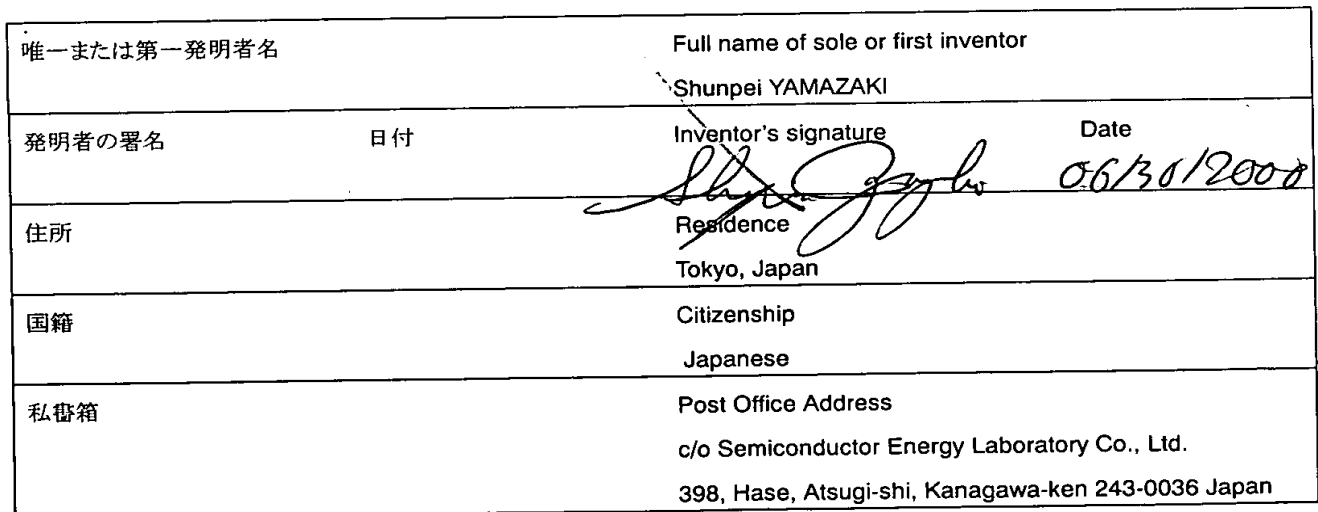 唯一または第一発明者名 Full name of sole or first inventor
Shunpei YAMAZAKI
発明者の署名 日付 Inventor's signature Date
06/30/2000
住所 Residence
Tokyo, Japan
国籍 Citizenship
Japanese
私書箱 Post Office Address
c/o Semiconductor Energy Laboratory Co., Ltd.
398, Hase, Atsugi-shi, Kanagawa-ken 243-0036 Japan